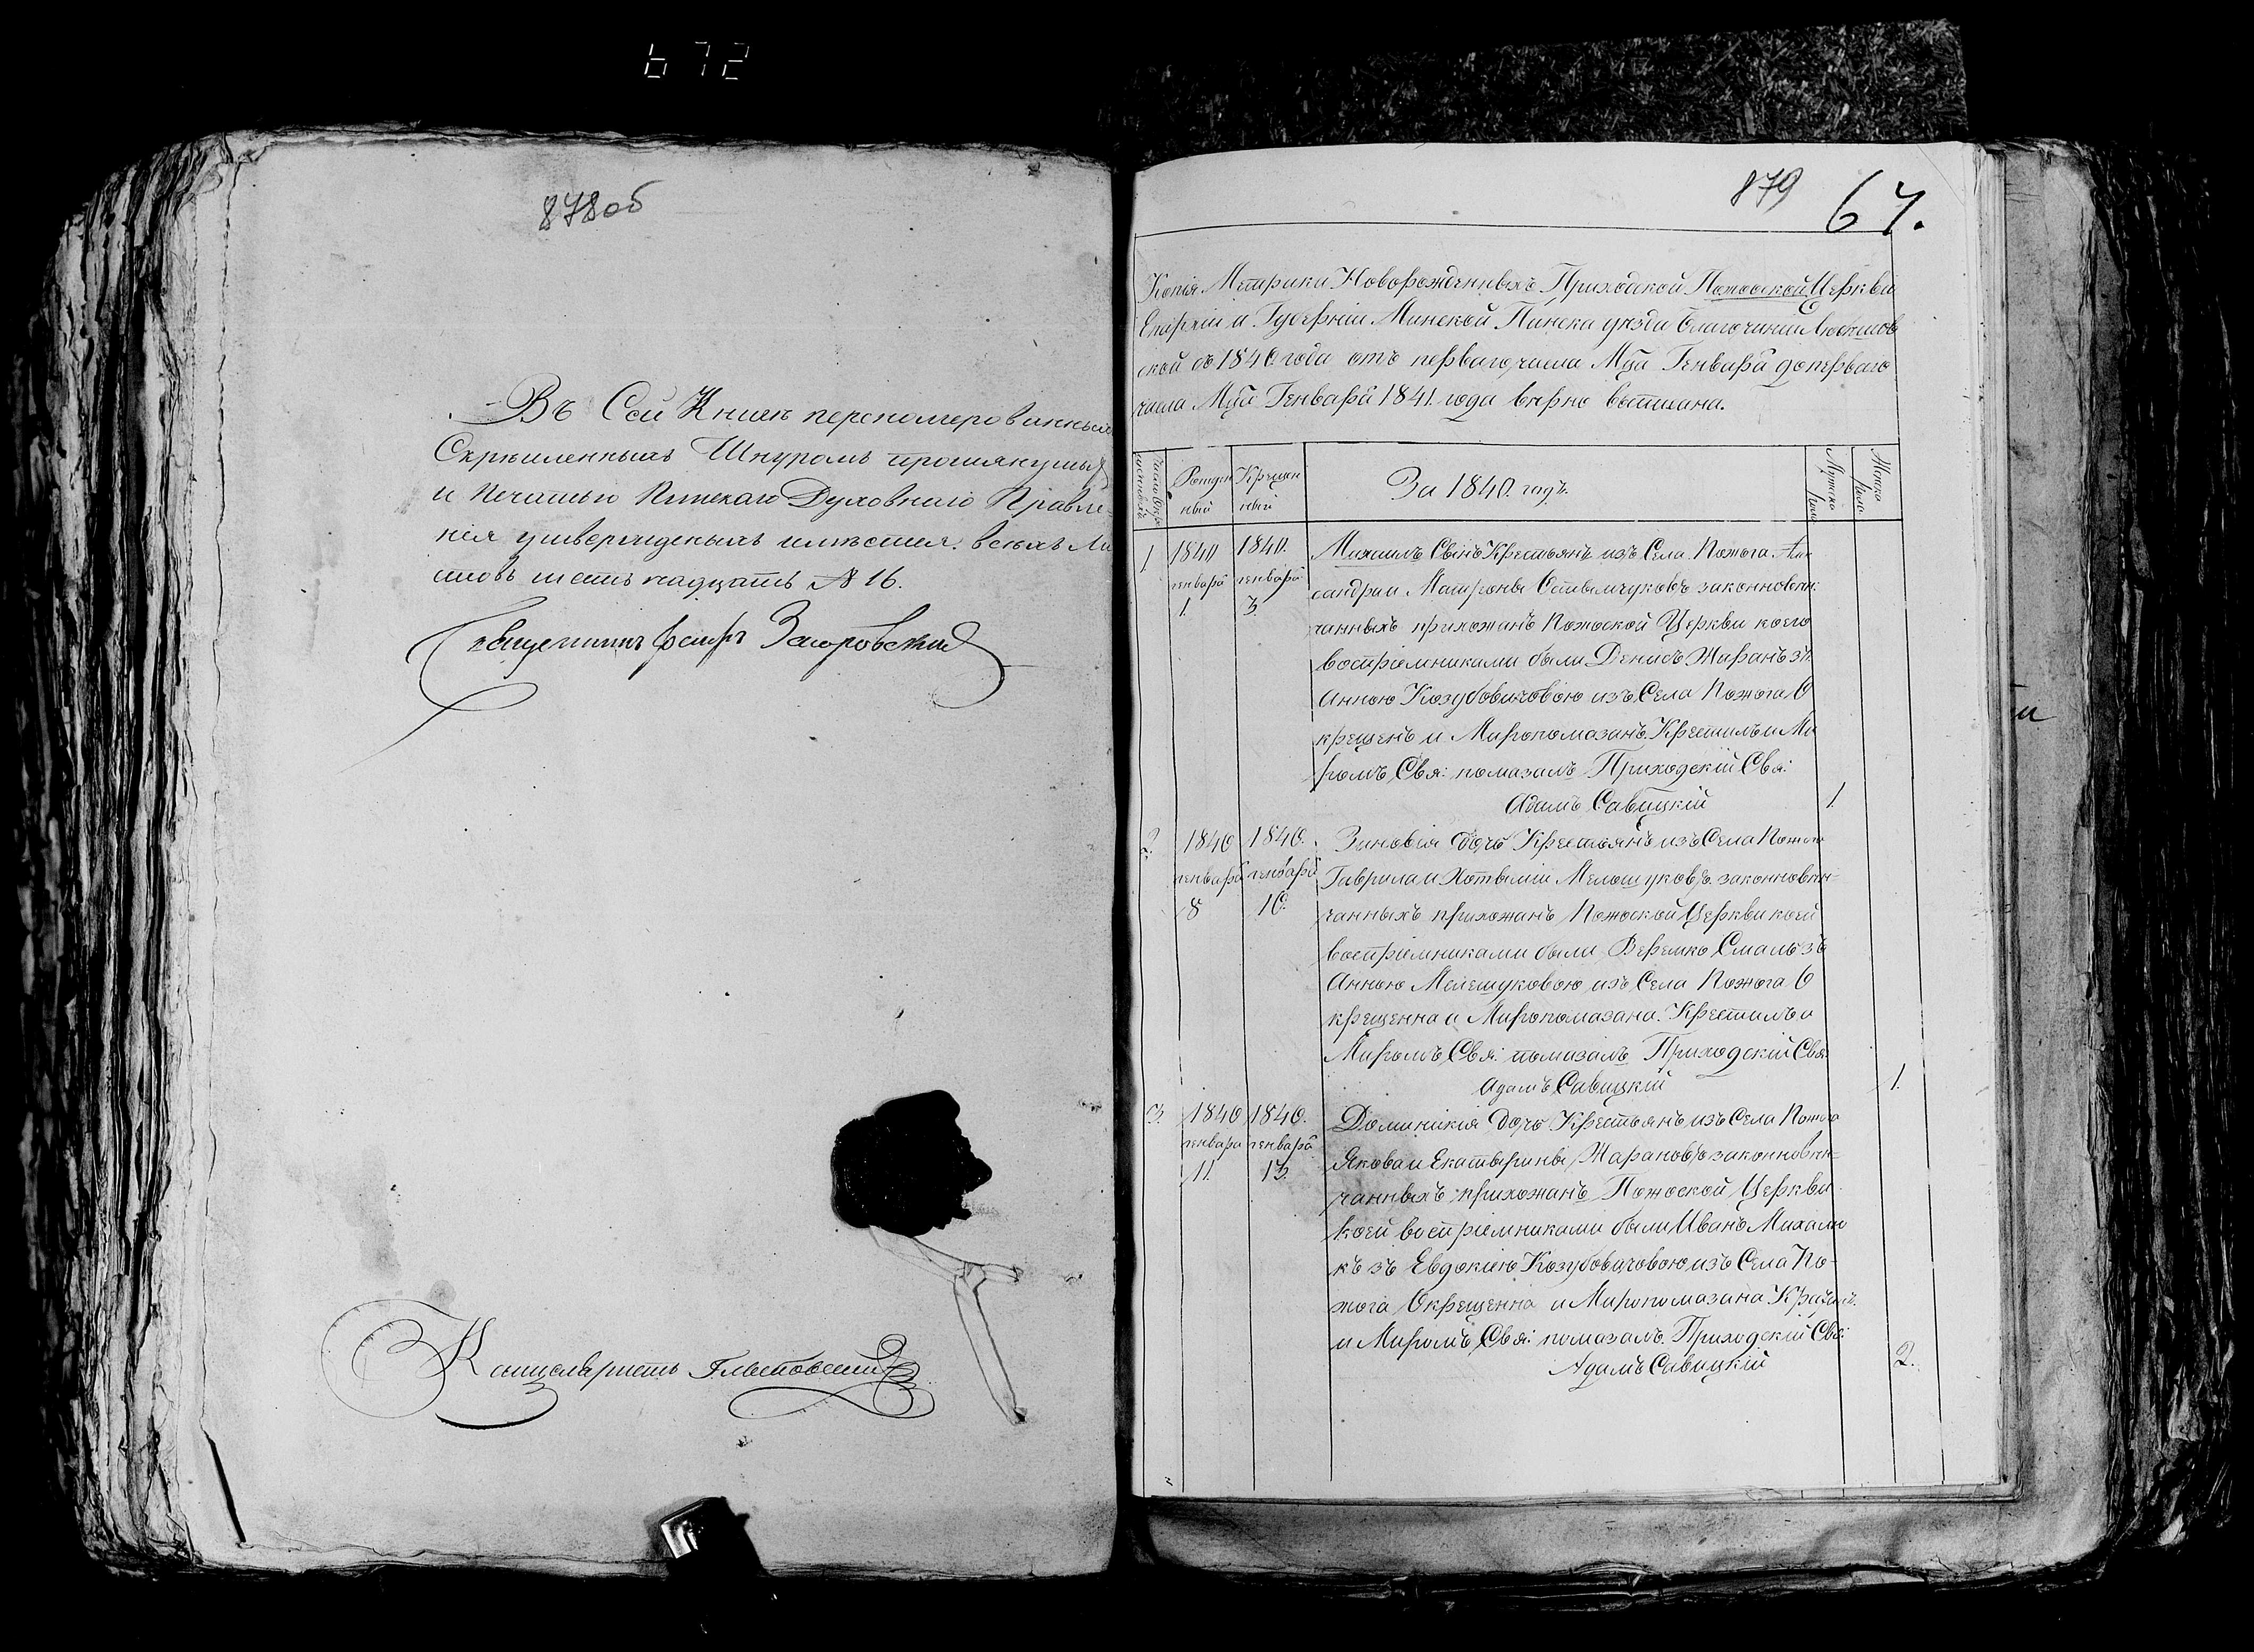 672
878об
Въ Сей Книгѣ переномерованныхъ
Скрѣпленныхъ Шнуромъ
и Печатью Пинскаго Духовнаго Правле-
нія утвержденныхъ имѣется. всѣхъ Ли
стовъ шестьнадцать № 16.
Священникъ Загоровскій
Канцеляристъ
879
67.
Копія Метрики Новорожденныхъ Приходской Пожоской Церкви
Епархіи и Губерніи Минской Пинска уѣзда Благочинія Любешов
ской съ 1840 года отъ перваго числа Мца Генваря доперваго
числа Мца Генваря 1841. года вѣрно выписана.
Рожден
ный
Крещен
ный
За 1840. годъ.
Мужеска
пола
Женска
пола.
1 1840 генваря 1. 1840. генваря 3.
Михаилъ Сынъ Крестьянъ изъ Села Пожога. Алек
сандра и Матроны законновѣн:
чанныхъ прихожанъ Пожоской Церкви коего
воспріемниками были Денисъ Жаранъ зъ
Анною Козубовичовою изъ Села Пожога О
крещенъ и Миропомазанъ. Крестилъ и Ми
ромъ Свя: помазалъ Приходскій Свя:
Адамъ Савицкій
1.
2. 1840 генваря 8 1840. генваря 10.
Зиновія дочь Крестьянъ изъ Села Пожога
Гаврила и Хотыміи Мелешуковъ законновѣн-
чанныхъ прихожанъ Пожоской Церкви коей
воспріемниками были Веремко Смаль зъ
Анною Мелешуковою изъ Села Пожога О
крещенна и Миропомазана. Крестилъ и
Миромъ Свя: помазалъ Приходскій Свя:
Адамъ Савицкій
1.
3. 1840 генваря 11. 1840. генваря 13.
Доминикія дочь Крестьянъ изъ Села Пожога
Якова и Екатырины Жарановъ законновѣн=
чанныхъ прихожанъ Пожоской Церкви
коей воспріемниками были Иванъ Михалю
къ зъ Евдокією Козубовичовою изъ Села По-
жога Окрещенна и Миропомазана
и Миромъ Свя: помазалъ. Приходскій Свя:
Адамъ Савицкій
2.